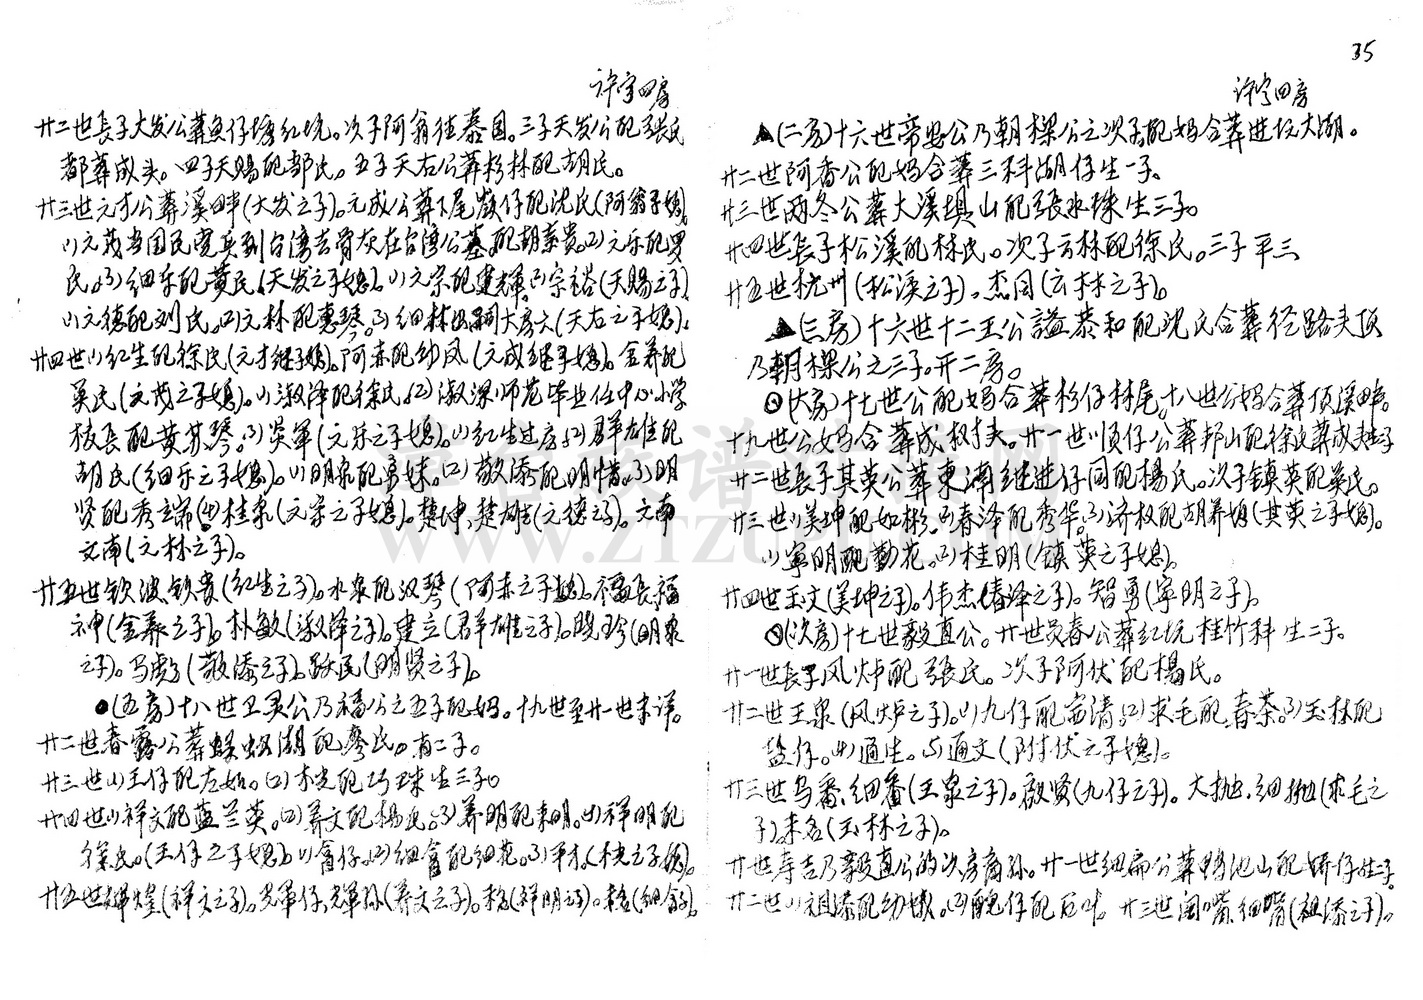 许字四房
廿二世長子大发公葬魚仔塘红坑。次子阿翁往泰国。三子天发公配張氏
都葬成头。四子天赐配部氏。五子天右公葬杉林配胡氏。
廿三世元才公葬溪畔(大发之子)。元成公葬下尾嶺仔配沈氏(阿翁子媳)。
⑴元茂当国民党兵到台湾去骨灰在台湾公墓配胡素贵。⑵元乐配罗
氏。⑶细乐配黄氏(天发之子媳)。⑴元宗配建輝。⑵宗裕(天赐之子)
⑴元德配刘氏。⑵元林配惠琴。⑶细林出嗣大房六(天右之子媳)。
廿四世⑴红生配徐氏(元才继子媳)。阿赤配幼凤(元成继子媳)。金养配
吴氏(元茂之子媳)。⑴淑泽配徐氏。⑵淑深师范毕业任中心小学
校長配黄苏琴。⑶吴軍(元乐之子媳)。⑴红生过房。⑵群雄配
胡氏(细乐之子媳)。⑴明泉配勇妹。⑵敬添配明惜。⑶明
贤配秀端。⑷桂泉(元宗之子媳)。楚坤,楚雄(元德之子)。文南
文南(元林之子)。
廿五世钦波,钦貴(红生之子)。水泉配汉琴(阿赤之子媳)。福長,福
神(金养之子)。朴敏(淑泽之子)。建立(群雄之子)。晓玲(明泉
之子)。马彪(敬添之子)。跃民(明贤之子)。
●(五房)十八世卫灵公乃福公之五子配妈。十九世至廿一世未详。
廿二世春露公葬蜈蚣湖配廖氏。有二子。
廿三世⑴王仔配左如。⑵桄配巧珠生三子。
廿四世⑴祥文配蓝兰英。⑵养文配杨氏。⑶养明配来明。⑷祥明配
徐氏。(王仔之子媳)。⑴畲仔。⑵细畲配细花。⑶平才。(桄之子媳)。
廿五世輝煌(祥文之子)。光軍仔,光軍孙(养文之子)。未名(祥明之子)。未名(细畲子)。
35
许字四房
▲(二房)十六世帝安公乃朝樑公之次子配妈合葬进坟大湖。
廿二世阿香公配妈合葬三科湖仔生一子。
廿三世两冬公葬大溪墘山配張水珠生三子。
廿四世長子松溪配林氏。次子云林配徐氏。三子平三
廿五世杭州(松溪之子)。杰同(云林之子)。
▲(三房)十六世十二王公謚恭和配沈氏合葬径路头顶
乃朝樑公之三子。开二房。
⊙(大房)十七世公配妈合葬杉仔林尾。十八世公妈合葬顶溪畔。
十九世公妈合葬成树夫。廿一世⑴顺仔公葬邦山配徐氏葬成夫生子
廿二世長子其英公葬東湳继进仔同配楊氏。次子镇英配吴氏。
廿三世⑴美坤配如彬。⑵春泽配秀华。⑶济权配胡界媚(其英之子媳)。
⑴寧明配勤花。⑵桂明(镇英之子媳)。
廿四世玉文(美坤之子)。伟杰(春泽之子)。智勇(寧明之子)。
⊙(次房)十七世毅直公。廿世員春公葬红坑桂竹科生二子。
廿一世長子风炉配張氏。次子阿伏配楊氏。
廿二世王泉(风炉之子)。⑴九仔配富清。⑵求毛配春茶。⑶玉林配
盐仔。⑷通生。⑸通文(阿伏之子媳)。
廿三世乌番,细番(王泉之子)。啟贤(九仔之子)。大抛,细抛(求毛之
子)。未名(玉林之子)。
廿世寿吉乃毅直公的次房裔孙。廿一世细扁公葬鸭池山配娇仔生子。
廿二世⑴祖添配幼娥。⑵醜仔配后叶。廿三世阔嘴,细嘴(祖添之子)。